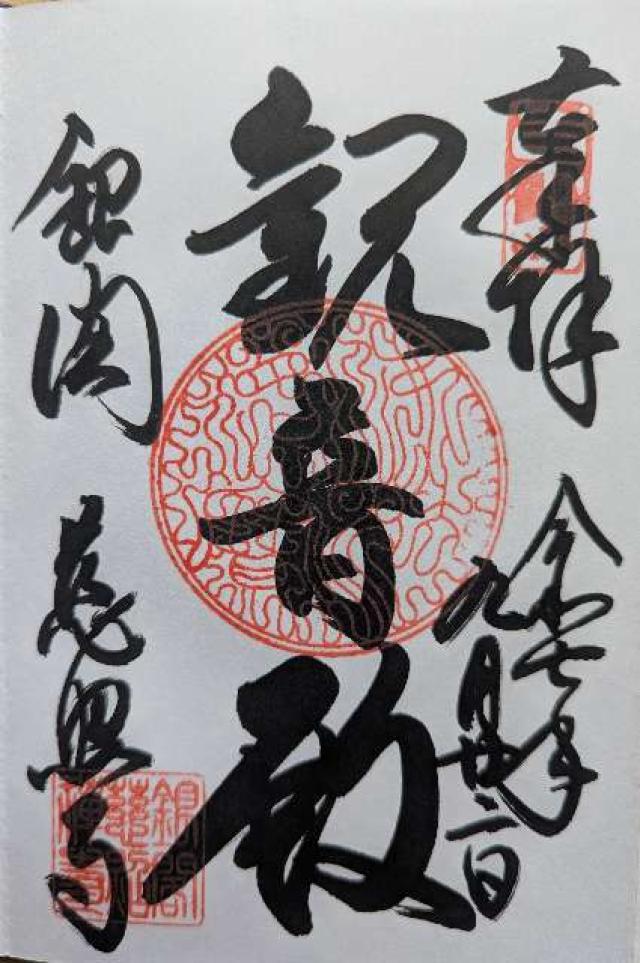 奉拝
令和七年
九月廿二日
観音殿
銀閣
慈照寺
銀閣慈照禅寺